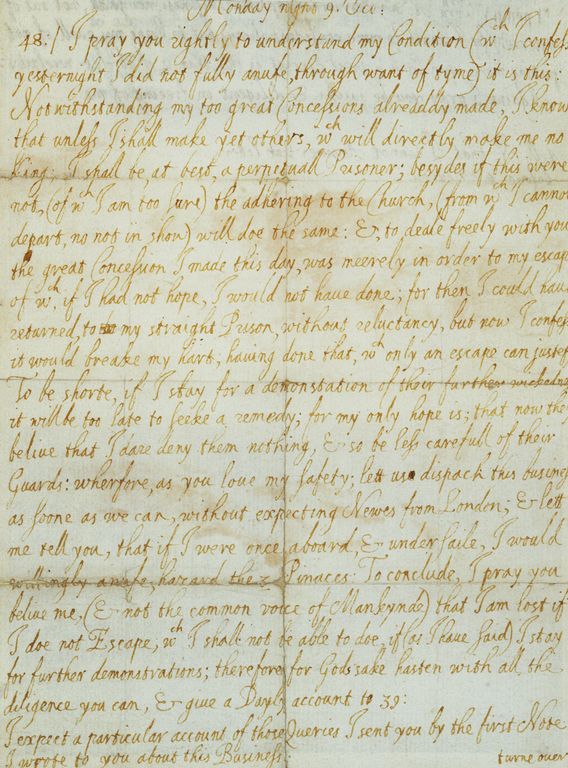 Monday night 9. Oct:
48./ I pray you rightly to understand my Condition (wch I confess
yesternight I did not fully answ:e, through want of tyme) it is this:
Notwithstanding my too great Concessions alreddy made, I know
that unless I shall make yet others, wch will directly make me no
King, I shall be at best, a perpetuall Prisoner; besydes if this were
not, (of wch I am too sure) the adhering to the Church, (from wch I cannot
depart, no not in show) will doe the same: &, to deale freely with you
the great Concession I made this day, was meerely in order to my escape
of wch, if I had not hope, I would not have done; for then I could have
returned, to my straight Prison, without reluctancy, but now I confess
it would breake my hart, having done that, wch only an escape can justefy
To be shorte, if I stay for a demonstation of their further wickedness
it will be too late to seeke a remedy; for my only hope is, that now they
belive that I dare deny them nothing, & so be less carefull of their
Guards: wherfore, as you love my safety; lett us dispach this business
as soone as we can, without expecting Newes from London; & lett
me tell you, that if I were once aboard, & under saile, I would
willingly anufe, hazard the 3 Pinaces: To conclude, I pray you
belive me, (& not the common voice of Mankynde) that I am lost if
I doe not Escape, wch I shall not be able to doe, if (as I have said) I stay
for further demonstrations; therefore for Gods sake hasten with all the
diligence you can, & give a Dayly account to 39:
I expect a particular account of those Queries I sent you by the first Note
I wrote to you about this Business
turne over